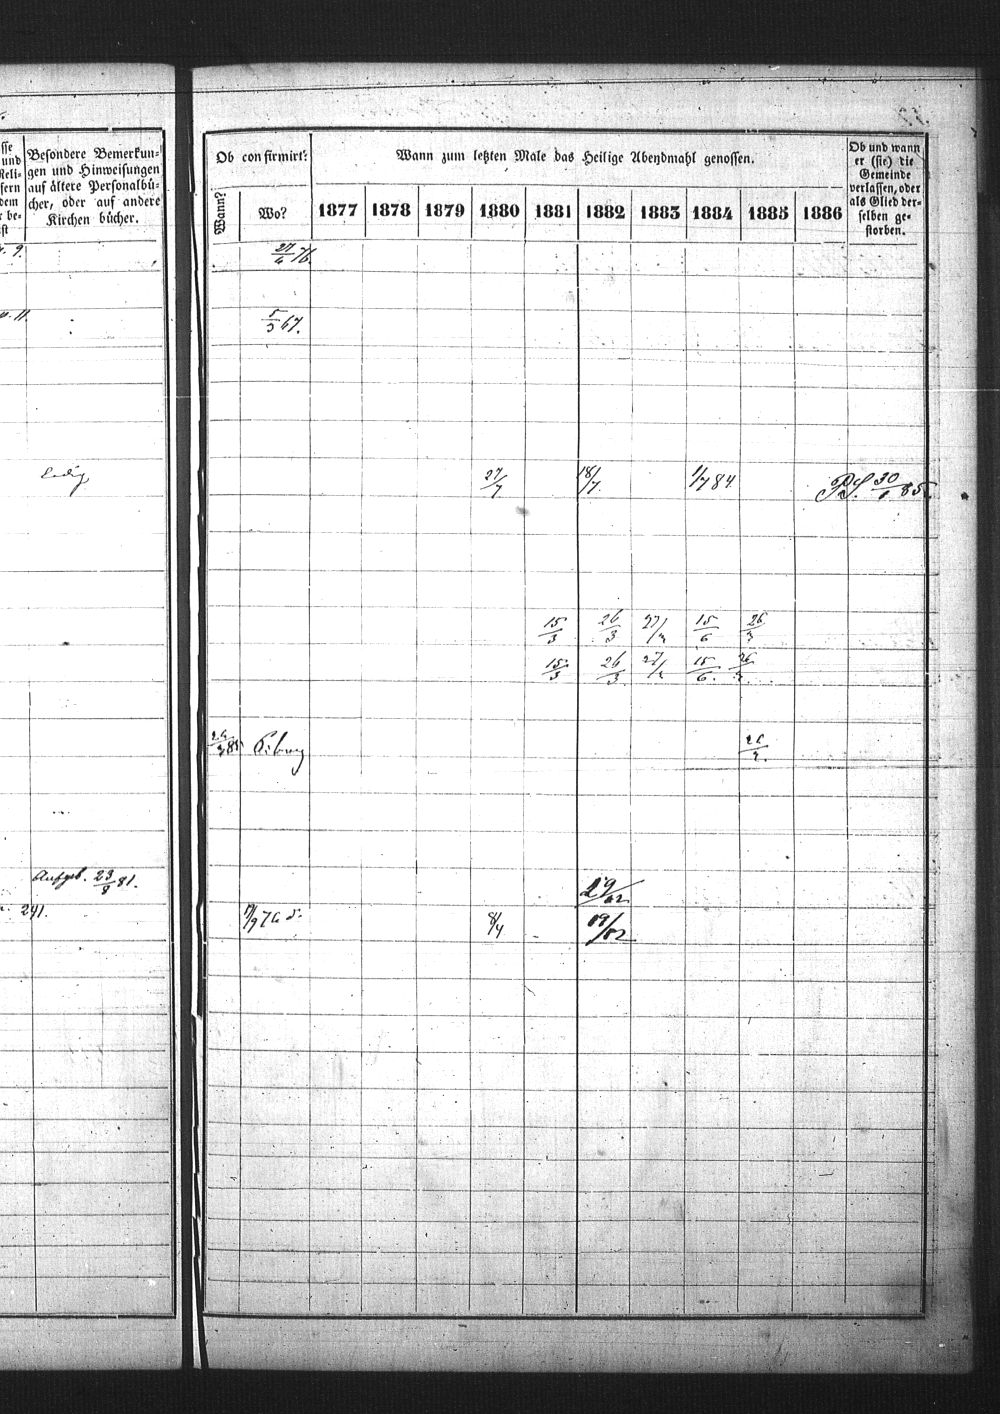 sse
und
Reli-
sern
dem
r be-
st
Besondere Bemerkun-
gen und Hinweisungen
auf ältere Personalbü-
cher, oder auf andere
Kirchen bücher.
Ob confirmirt?
Wann?
Wo?
Wann zum letzten Male das Heilige Abendmahl genossen.
1877 1878 1879 1880 1881 1882 1883 1884 1885 1886
Ob und wann
er (sie) die
Gemeinde
verlassen, oder
als Glied der-
selben ge-
storben.
9.
27/4 76.
11.
5/3 67.
Ledig
27/7 18/7. 1/7 84 30/1 85.
15/3 26/3 27/2 15/6 26/2
15/3 26/3 27/2 15/6. 26/2.
26/2.
Aufgeb. 23/8 81.
29/02
241.
8/4 09/02